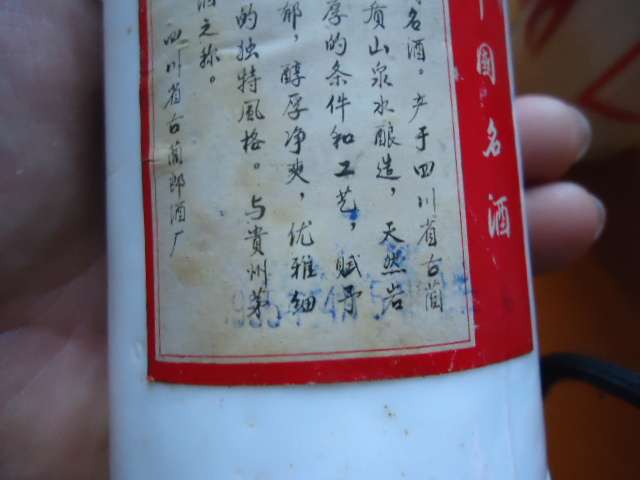 中國名酒
名酒。产于四川省古蔺
质山泉水酿造，天然岩
厚的条件和工艺，赋予
郁，醇厚净爽，优雅细
的独特風格。与貴州茅
之称。
四川省古蔺郎酒厂